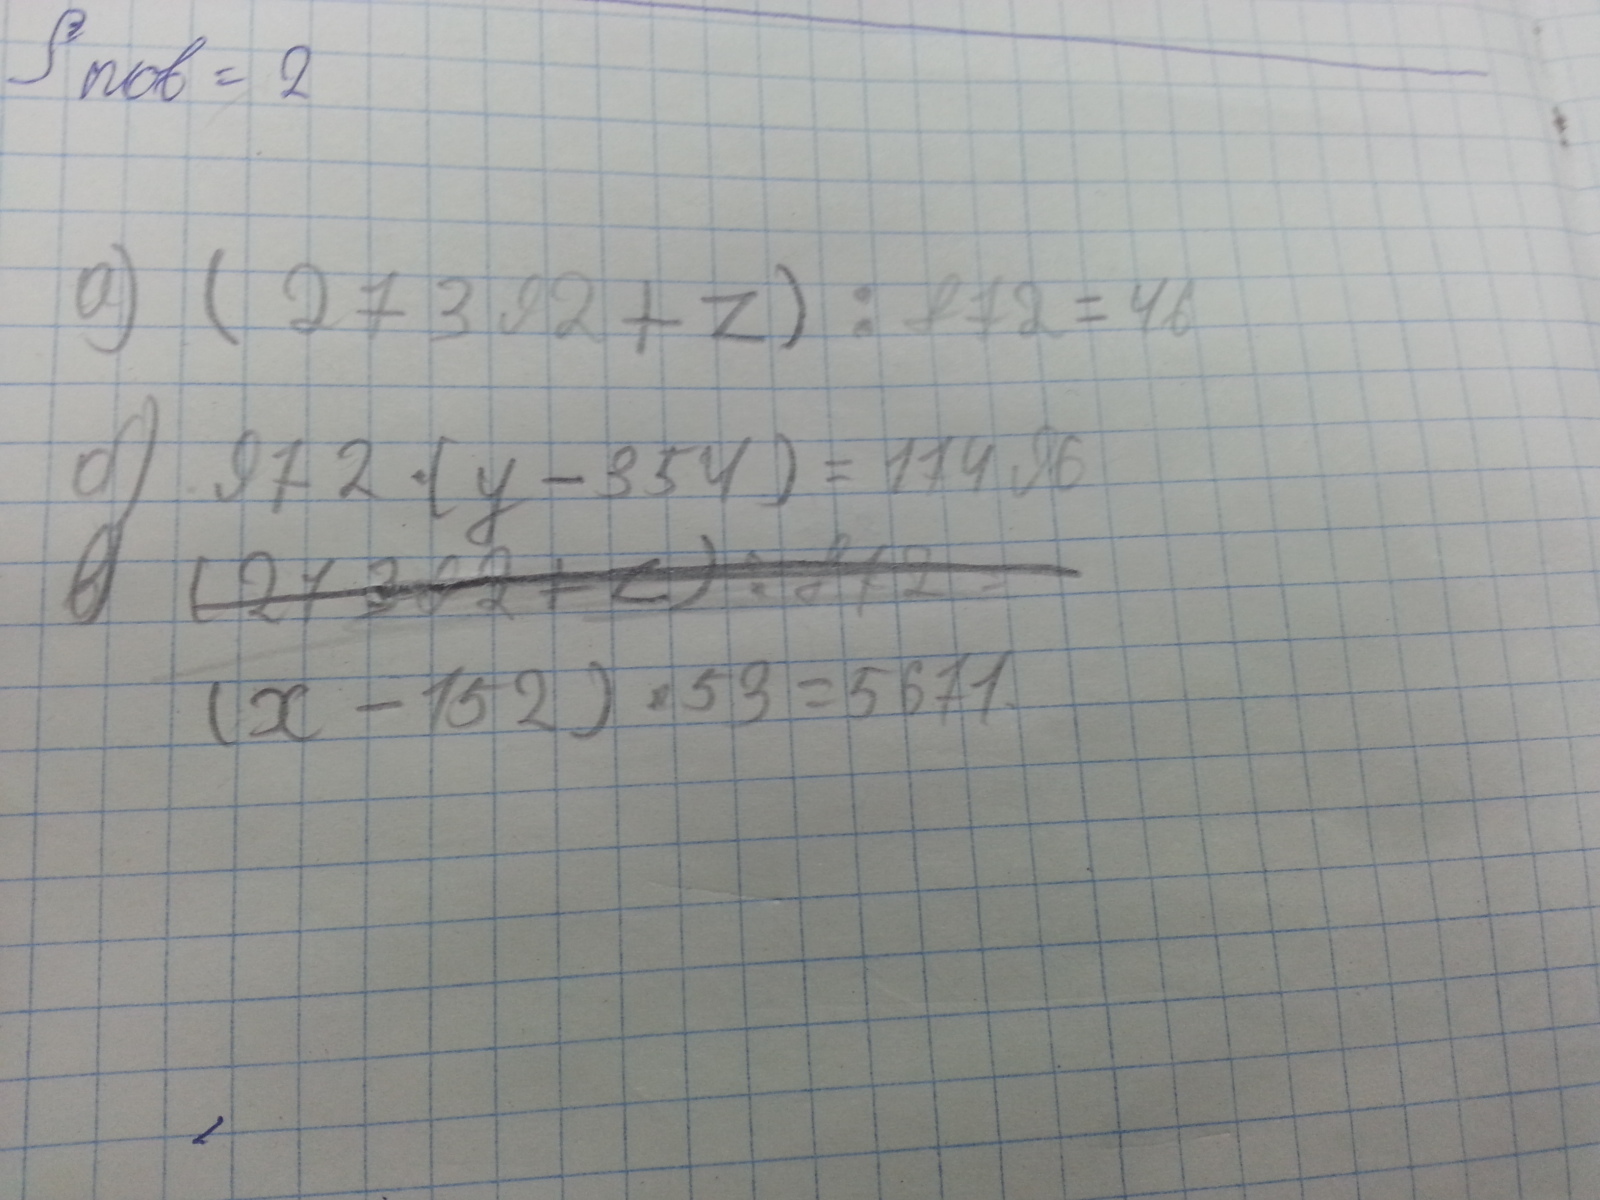 Sпов = 2
а) (27392 + z) : 872 = 46
б) 972 · (y - 354) = 11496
в) (27392 + z) : 872 =
(x - 152) · 53 = 5671.